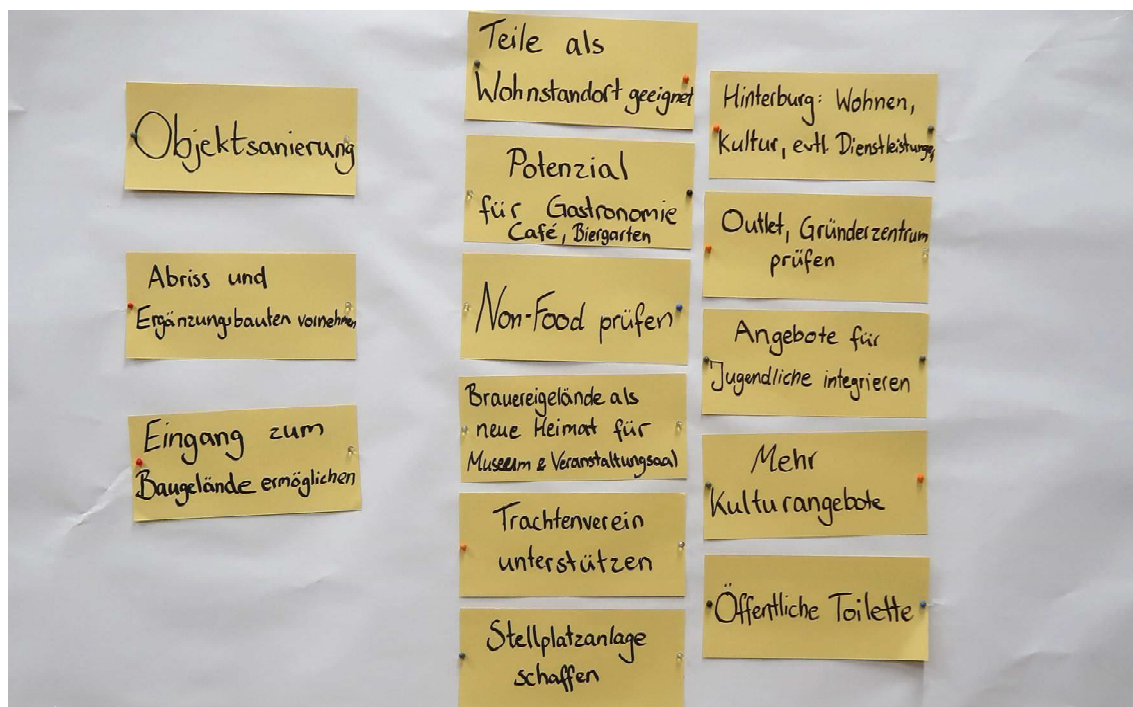 Objektsanierung
Abriss und
Ergänzungsbauten vornehmen
Eingang zum
Baugelände ermöglichen
Teile als
Wohnstandort geeignet
Potenzial
für Gastronomie
Café, Biergarten
Non-Food prüfen
Brauereigelände als
neue Heimat für
Museum & Veranstaltungsaal
Trachtenverein
unterstützen
Stellplatzanlage
schaffen
Hinterburg: Wohnen,
Kultur, evtl. Dienstleistungen
Outlet, Gründerzentrum
prüfen
Angebote für
Jugendliche integrieren
Mehr
Kulturangebote
Öffentliche Toilette